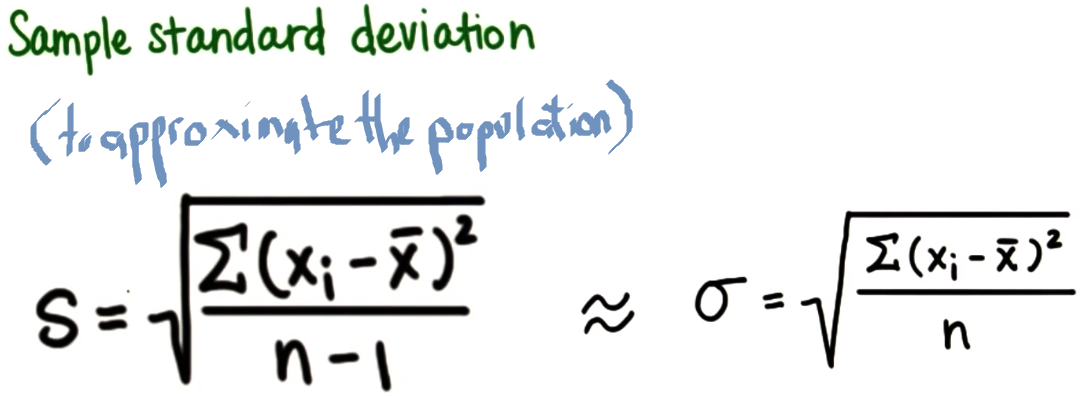 Sample standard deviation
(to approximate the population)
s = √(Σ(xᵢ - x̄)² / (n - 1)) ≈ σ = √(Σ(xᵢ - x̄)² / n)